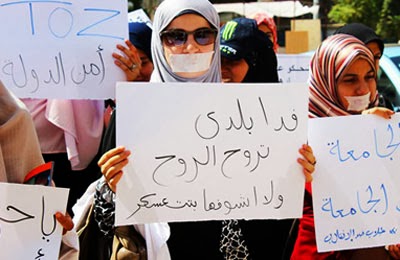 TOZ
أمن الدولة
فدا بلدى
تروح الروح
ولا اشوفها بتتعسكر
الجامعة
الجامعة